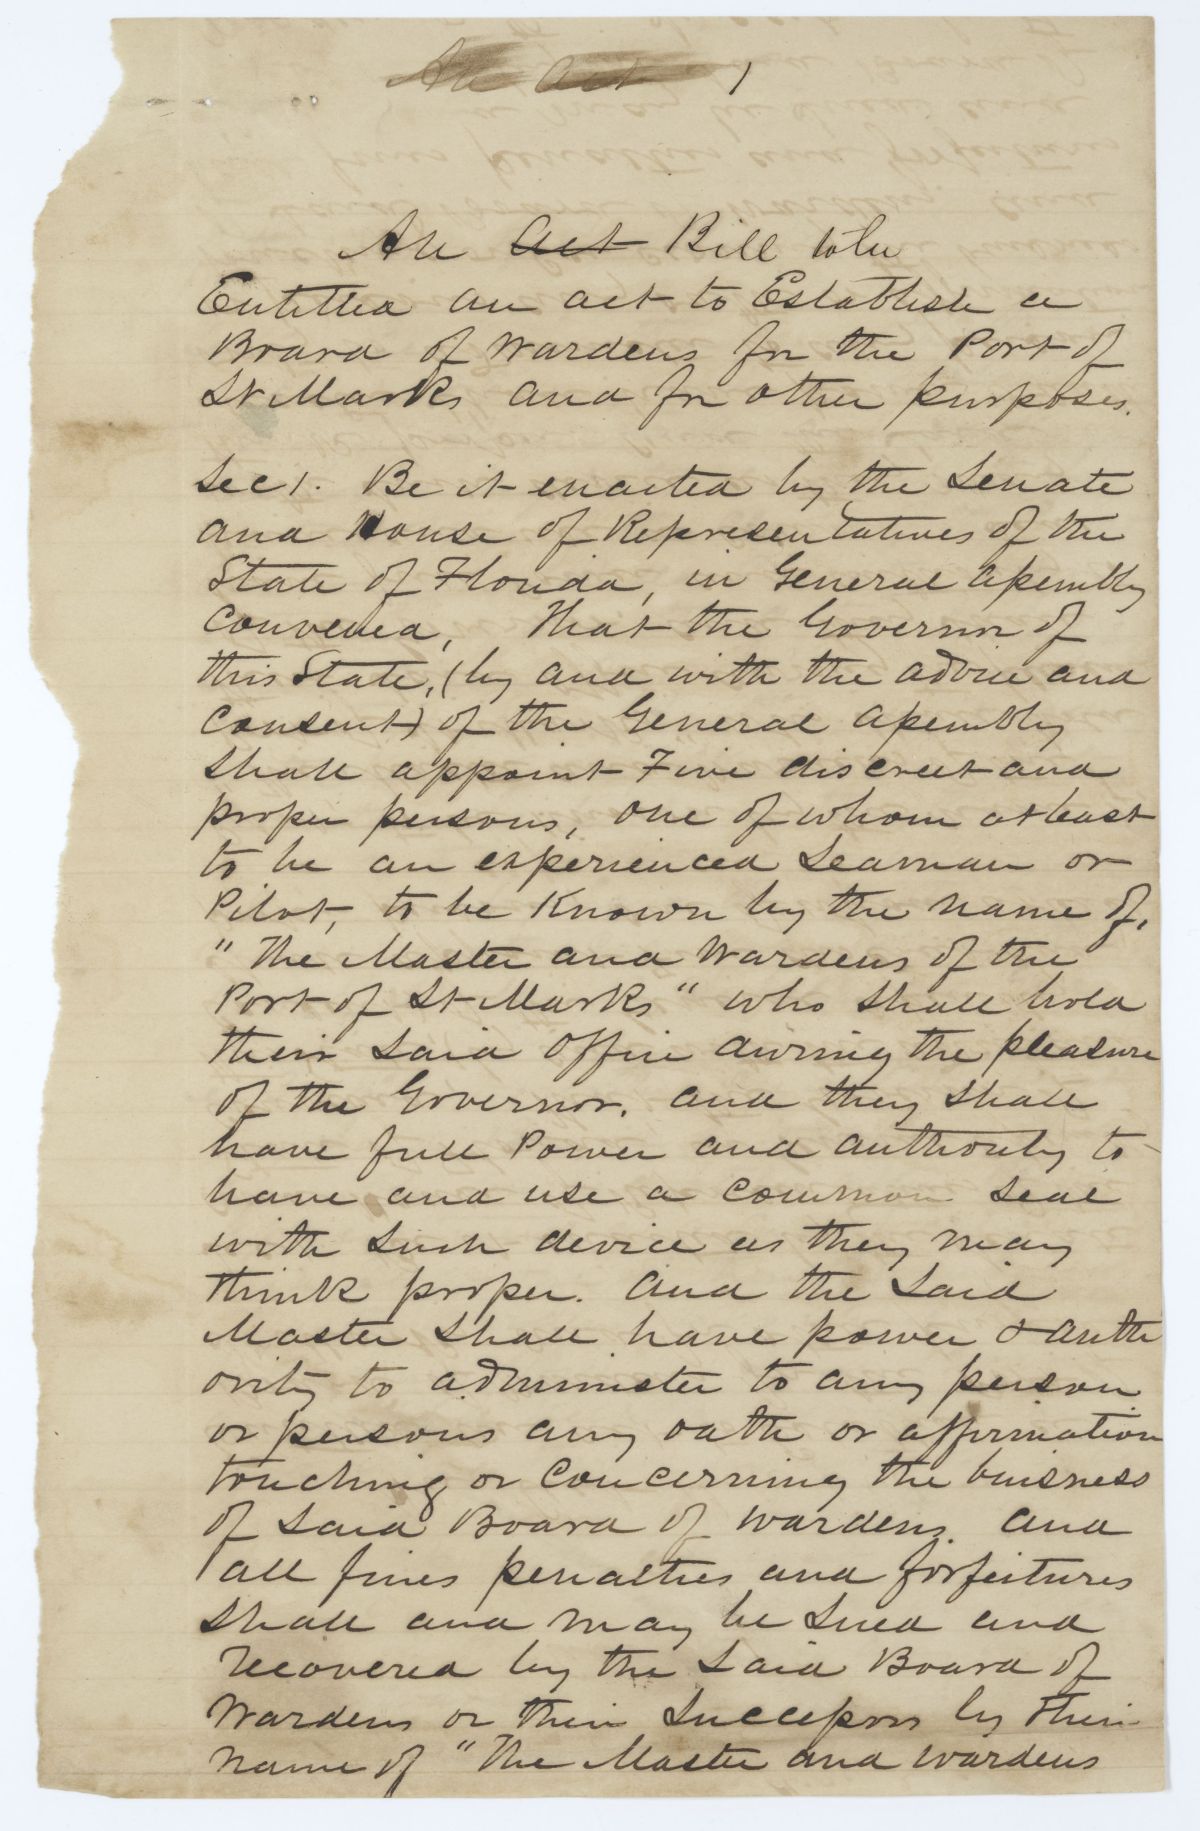 An Act 1
An Act Bill to be
Entitled an act to Establish a
Board of Wardens for the Port of
St Marks and for other purposes.
Sec 1. Be it enacted by the Senate
and House of Representatives of the
State of Florida, in General Assembly
Convened, That the Governor of
this State, (by and with the advice and
consent) of the General Assembly
shall appoint Five discreet and
proper persons, one of whom at least
to be an experienced Seaman or
Pilot, to be Known by the name of,
"The Master and Wardens of the
Port of St Marks" who shall hold
their said office during the pleasure
of the Governor. and they shall
have full Power and authority to
have and use a common seal
with such device as they may
think proper. and the Said
Master shall have power & auth
ority to administer to any person
or persons any oath or affirmation
touching or concerning the buisness
of said Board of wardens. and
all fines penalties and forfeitures
shall and may be sued and
recovered by the said Board of
Wardens or their Successors by their
name of "The Master and wardens